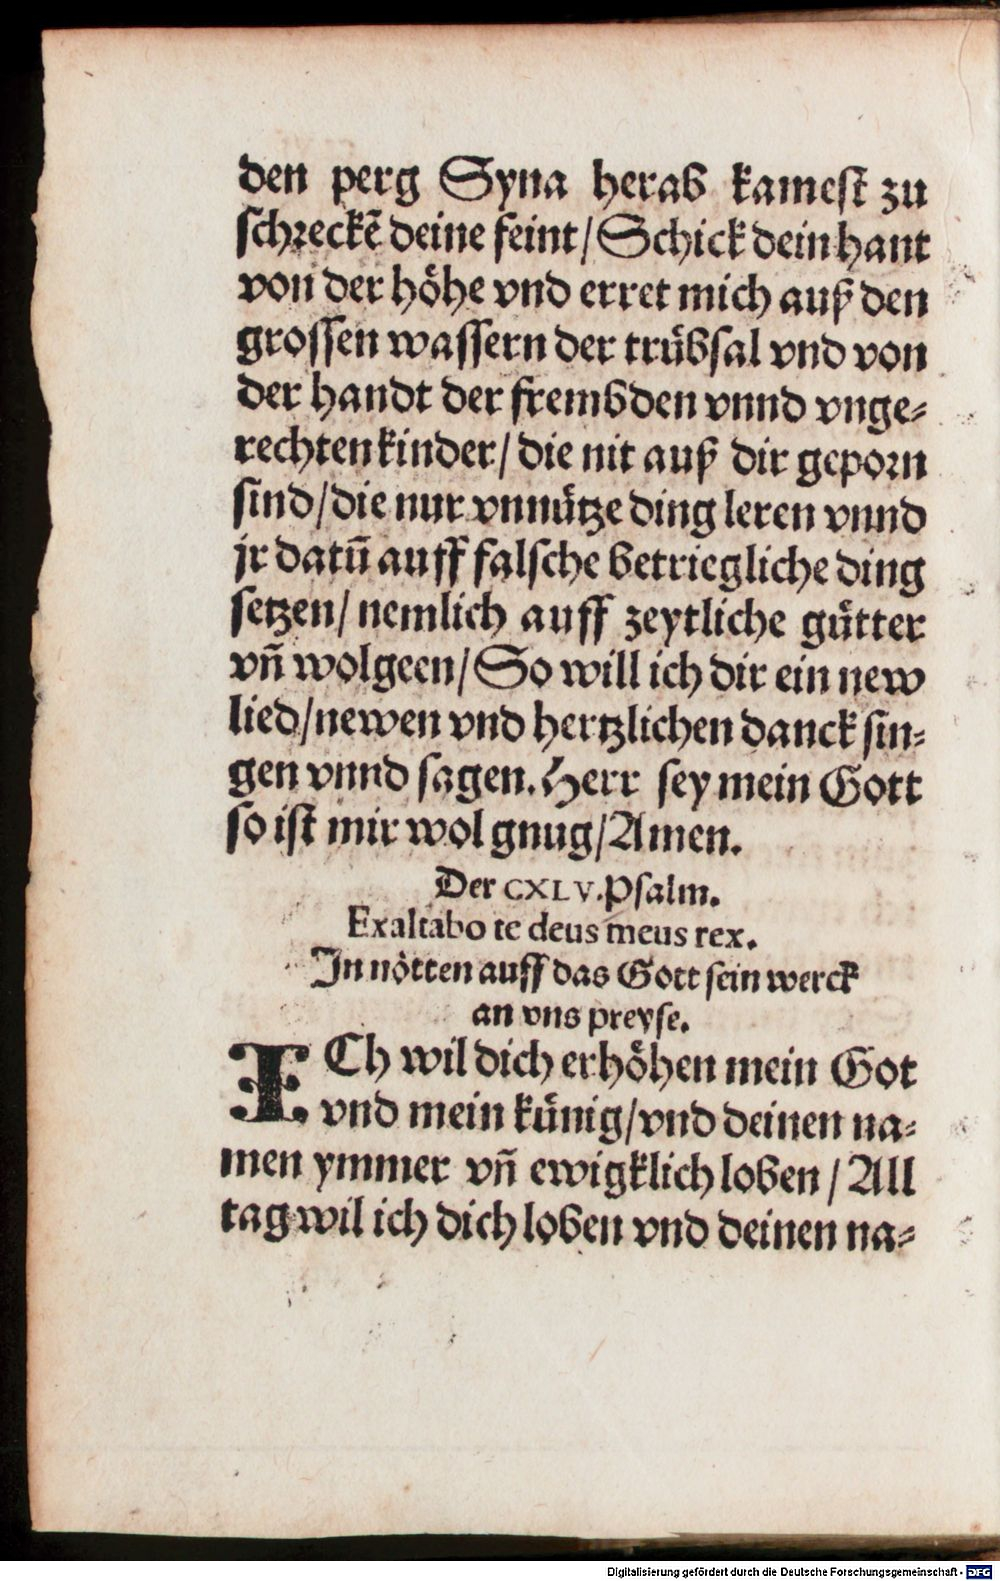 den perg Syna herab kamest zu
schreckē deine feint/Schick dein hant
von der höhe vnd erret mich auß den
grossen wassern der trübsal vnd von
der handt der frembden vnnd vnge⸗
rechten kinder/die nit auß dir geporn
sind/die nur vnnütze ding leren vnnd
jr datū auff falsche betriegliche ding
setzen/nemlich auff zeytliche gütter
vn̄ wolgeen/So will ich dir ein new
lied/newen vnd hertzlichen danck sin⸗
gen vnnd sagen. Herr sey mein Gott
so ist mir wol gnug/Amen.
Der CXLV. Psalm.
Exaltabo te deus meus rex.
In nötten auff das Gott sein werck
an vns preyse.
ICh wil dich erhöhen mein Got
vnd mein künig/vnd deinen na⸗
men ymmer vn̄ ewigklich loben/All
tag wil ich dich loben vnd deinen na⸗
Digitalisierung gefördert durch die Deutsche Forschungsgemeinschaft - DFG